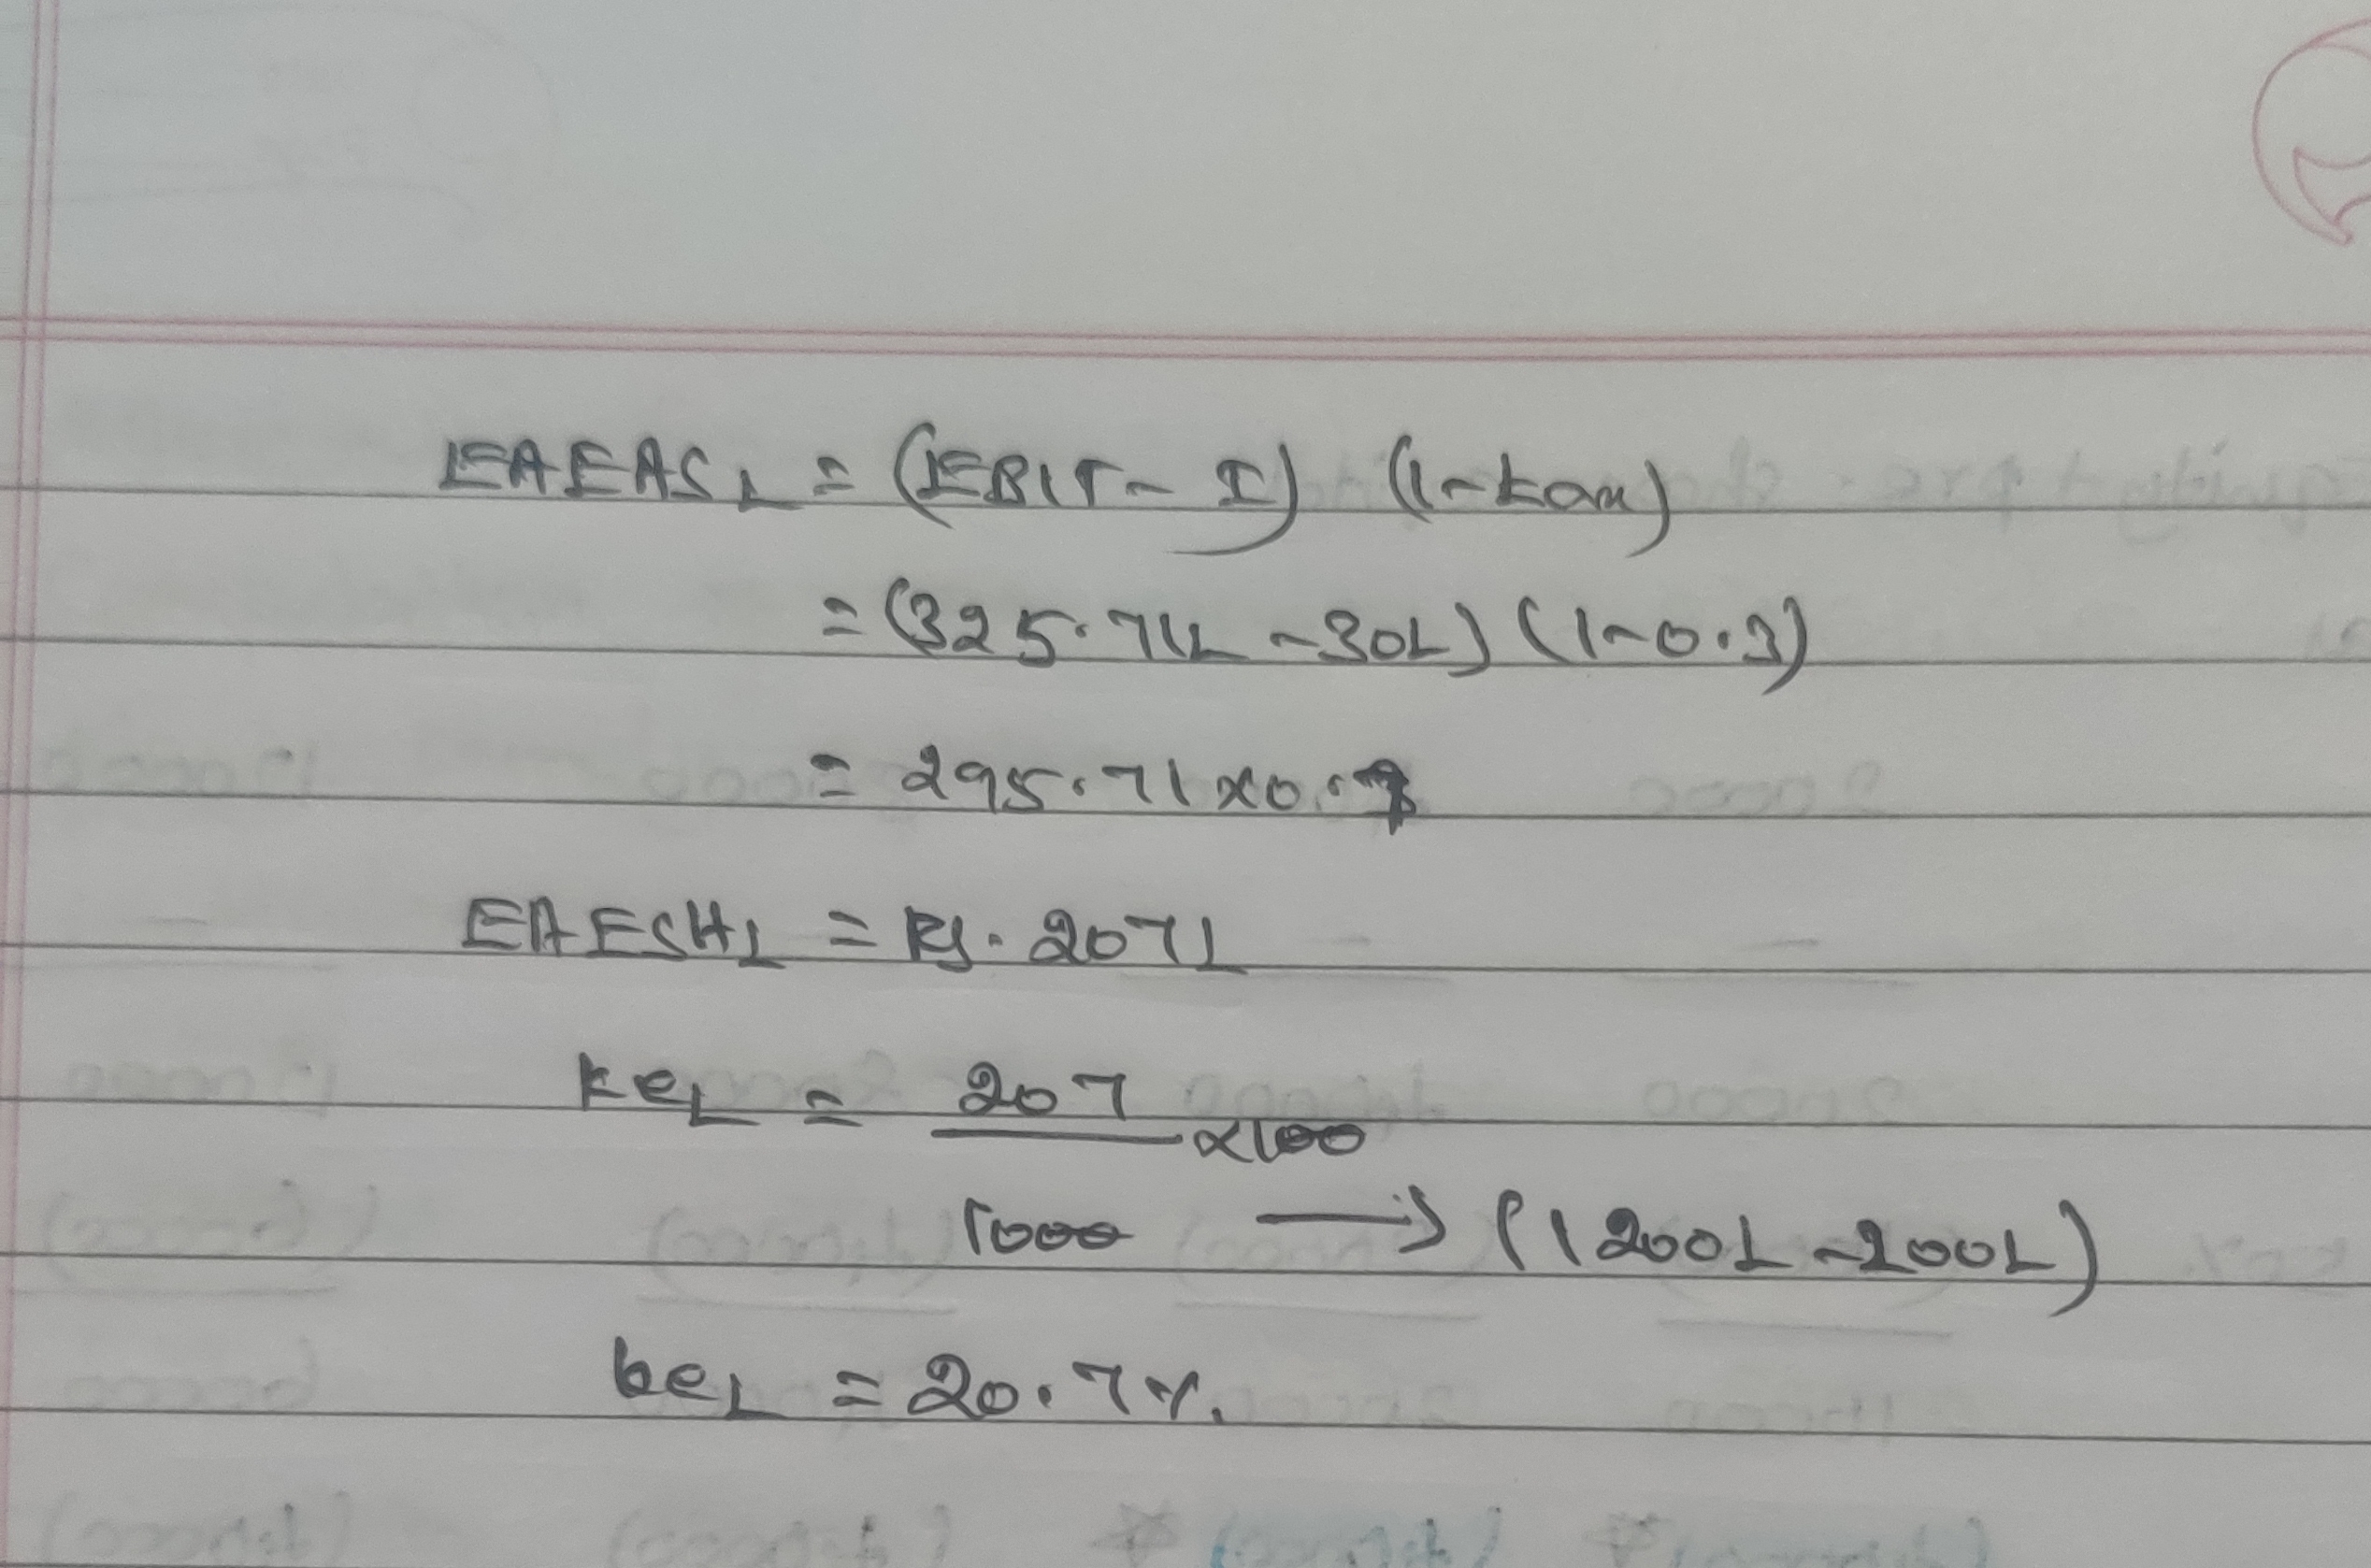 EAEAS L = (EBIT - I) (1 - tax)
= (325.71L - 30L) (1 - 0.3)
= 295.71 x 0.7
EAESHL = Rs. 207L
keL = 207
x100
1000 → (1200L - 200L)
keL = 20.7%.